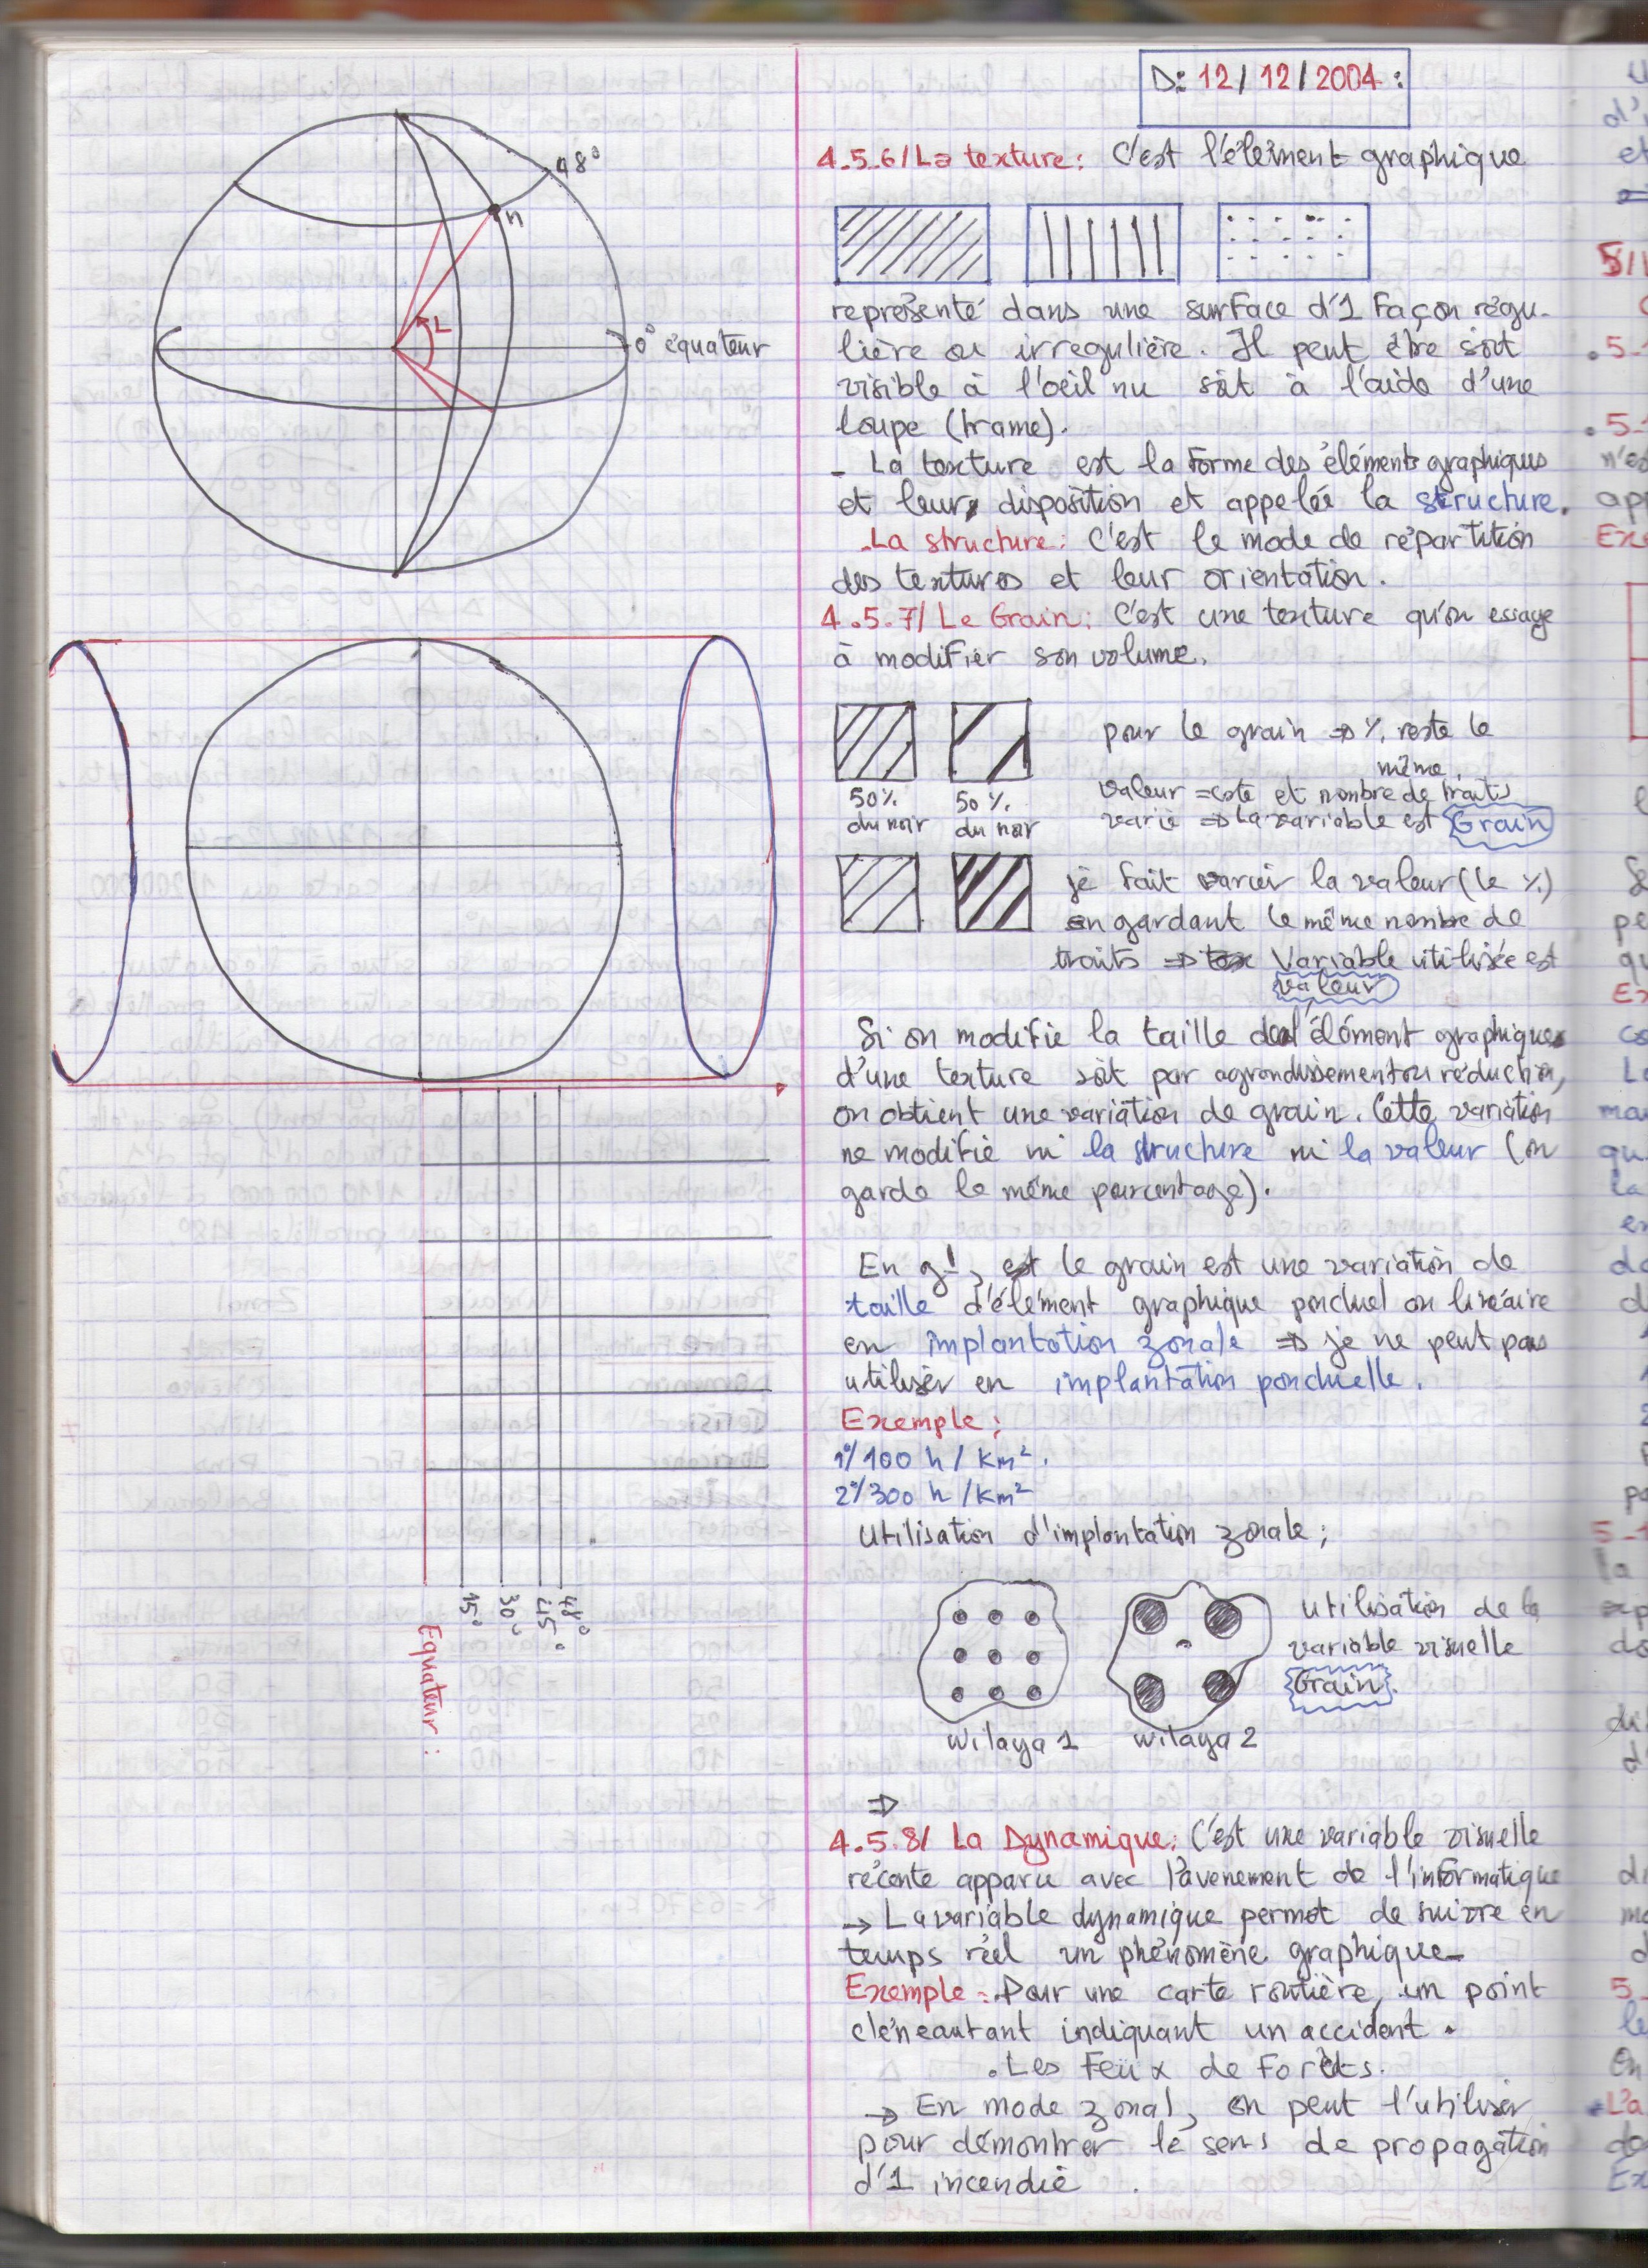 48°
n
L
0° équateur
15°
30°
45°
48°
Equateur :
D: 12/12/2004 :
4.5.6/ La texture : C'est l'éleiment graphique
représenté dans une surface d'1 Façon régu-
lière ou irregulière. Il peut être soit
visible à l'oeil nu soit à l'aide d'une
loupe (trame).
- La texture est la Forme des éléments graphiques
et leurs disposition et appelée la structure.
.La structure : C'est le mode de répartition
des textures et leur orientation.
4.5.7/ Le Grain : C'est une texture qu'on essaye
à modifier son volume.
50% du noir
50% du noir
pour le grain ⇒ % reste le
même.
Valeur = cste et nombre de traits
varie ⇒ La variable est Grain
je fait varier la valeur (le %)
en gardant le même nombre de
traits ⇒ Variable utilisée est
valeur
Si on modifie la taille de l'élément graphique
d'une texture soit par agrandissement ou réduction,
on obtient une variation de grain. Cette variation
ne modifie ni la structure ni la valeur (on
garde le même parcentage).
En gl, le grain est une variation de
taille d'élément graphique ponctuel ou linéaire
en implantation zonale ⇒ je ne peut pas
utiliser en implantation ponctuelle.
Exemple :
1°/ 100 h / Km².
2°/ 300 h / Km²
Utilisation d'implantation zonale ;
wilaya 1
wilaya 2
utilisation de la
variable visuelle
Grain.
⇒
4.5.8/ La Dynamique : C'est une variable visuelle
récente apparu avec l'avenement de l'informatique
→ La variable dynamique permet de suivre en
temps réel un phénomène graphique-
Exemple : Pour une carte routière, un point
cléneautant indiquant un accident.
. Les Feux de Forêts.
→ En mode zonal, on peut l'utiliser
pour démontrer le sens de propagation
d'1 incendie .